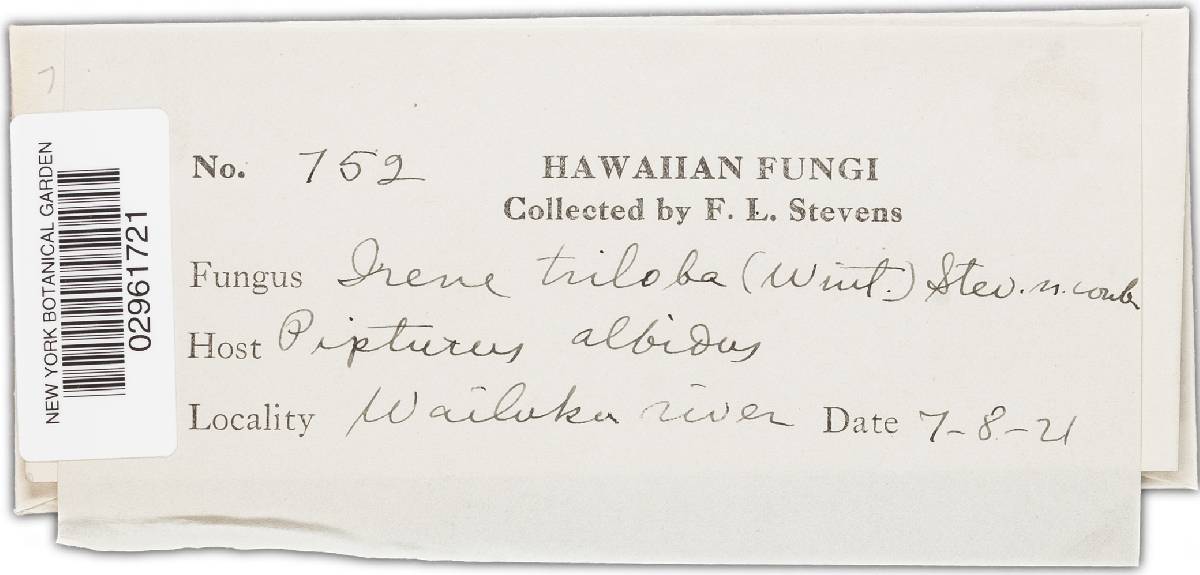 7
NEW YORK BOTANICAL GARDEN
02961721
No. 752
HAWAIIAN FUNGI
Collected by F. L. Stevens
Fungus Irene triloba (Wint.) Stev. n. comb
Host Pipturus albidus
Locality Wailuku river Date 7-8-21